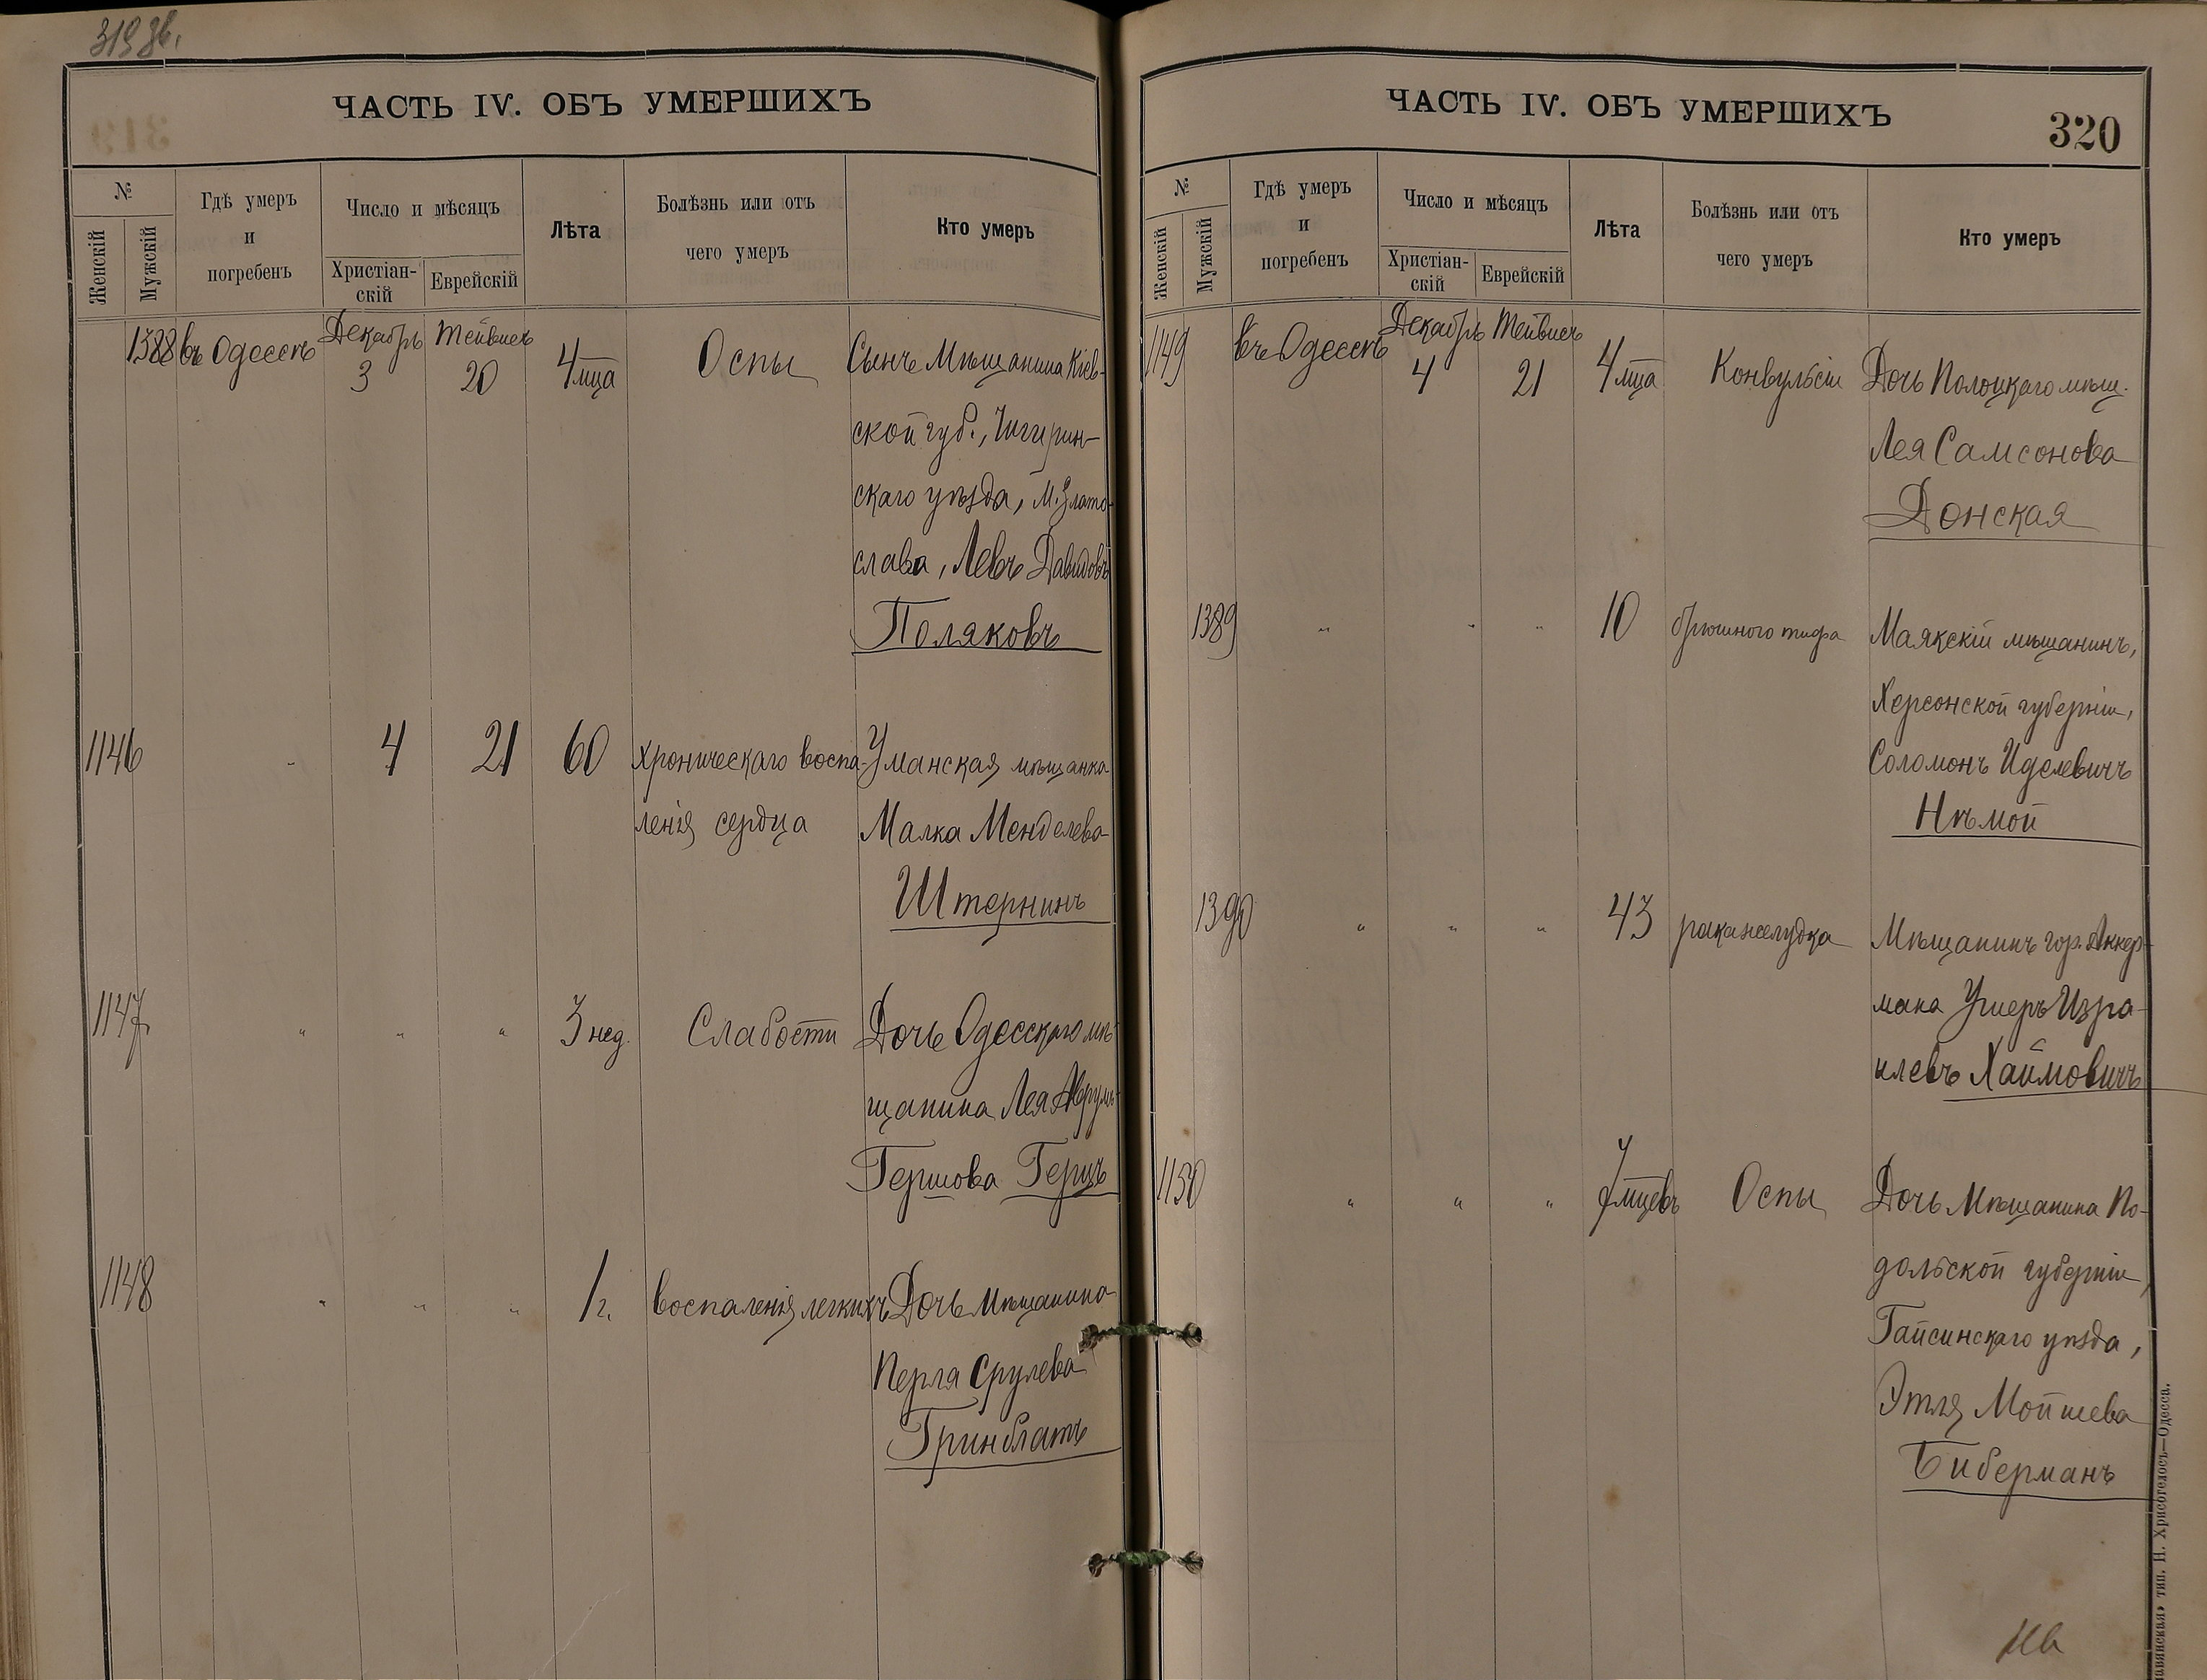 319 зв.
ЧАСТЬ IV. ОБЪ УМЕРШИХЪ
№
Женскій
Мужскій
Гдѣ умеръ
и
погребенъ
Число и мѣсяцъ
Христіан-
скій
Еврейскій
Лѣта
Болѣзнь или отъ
чего умеръ
Кто умеръ
1388 въ Одессѣ Декабрь 3 Тейвисъ 20 4 мца Оспы Сынъ Мѣщанина Кіев-
ской губ., Чигирин-
скаго уѣзда, М. Злато-
слава, Левъ Давидовъ
Поляковъ
1146 " 4 21 60 хроническаго воспа- Уманская мѣщанка
ленія сердца Малка Менделева
Штернинъ
1147 " " " 3 нед. Слабости Дочь Одесскаго мѣ-
щанина Лея Аврумъ-
Гершова Герцъ
1148 " " " 1 г. воспаленія легкихъ Дочь Мѣщанина
Перля Срулева
Гринблатъ
ЧАСТЬ IV. ОБЪ УМЕРШИХЪ
320
№
Женскій
Мужскій
Гдѣ умеръ
и
погребенъ
Число и мѣсяцъ
Христіан-
скій
Еврейскій
Лѣта
Болѣзнь или отъ
чего умеръ
Кто умеръ
1149 въ Одессѣ Декабрь 4 Тейвисъ 21 4 мца Конвульсіи Дочь Полоцкаго мѣщ.
Лея Самсонова
Донская
1389 " " " 10 брюшного тифа Маякскій мѣщанинъ,
Херсонской губерніи,
Соломонъ Иделевичъ
Нѣмой
1390 " " " 43 рака желудка Мѣщанинъ гор. Аккер-
мана Ушеръ Изра-
илевъ Хаймовичъ
1150 " " " 7 мцевъ Оспы Дочь Мѣщанина По-
дольской губерніи,
Гайсинскаго уѣзда,
Этля Мойшева
Биберманъ
тип. Н. Хрисогелосъ—Одесса.